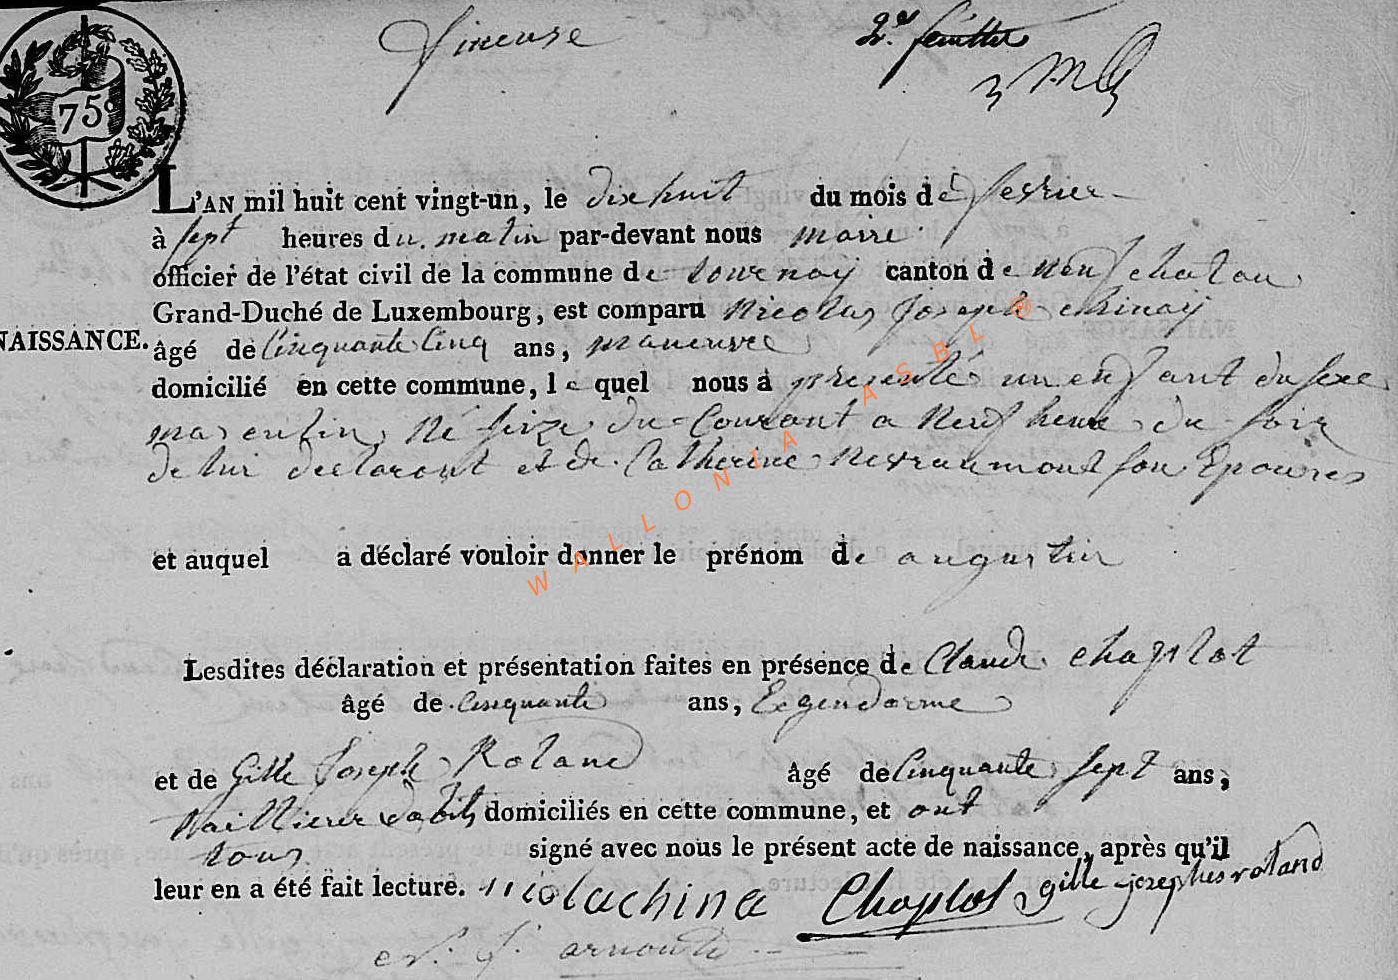 75c
L'AN mil huit cent vingt-un, le dixhuit du mois de fevrier
à sept heures du matin par-devant nous maire
officier de l'état civil de la commune de tournay canton de neufchatau
Grand-Duché de Luxembourg, est comparu Nicolas Joseph chinay
NAISSANCE.
âgé de Cinquante Cinq ans, maneuvre
domicilié en cette commune, le quel nous à presenté un enfant du sexe
masculin, Né seize du Courant a Neuf heure du soir
de lui declarant et de Catherine Nevraumont son Epouse
et auquel a déclaré vouloir donner le prénom de augustin
Lesdites déclaration et présentation faites en présence de Claude Chaplot
âgé de cinquante ans, Exgendarme
et de Gille Joseph Roland âgé de Cinquante sept ans,
taillieur dabits domiciliés en cette commune, et ont
tous signé avec nous le présent acte de naissance, après qu'il
leur en a été fait lecture. nicolachina Chaplot gille josephes roland
arnould
WALLONIA ASBL ®